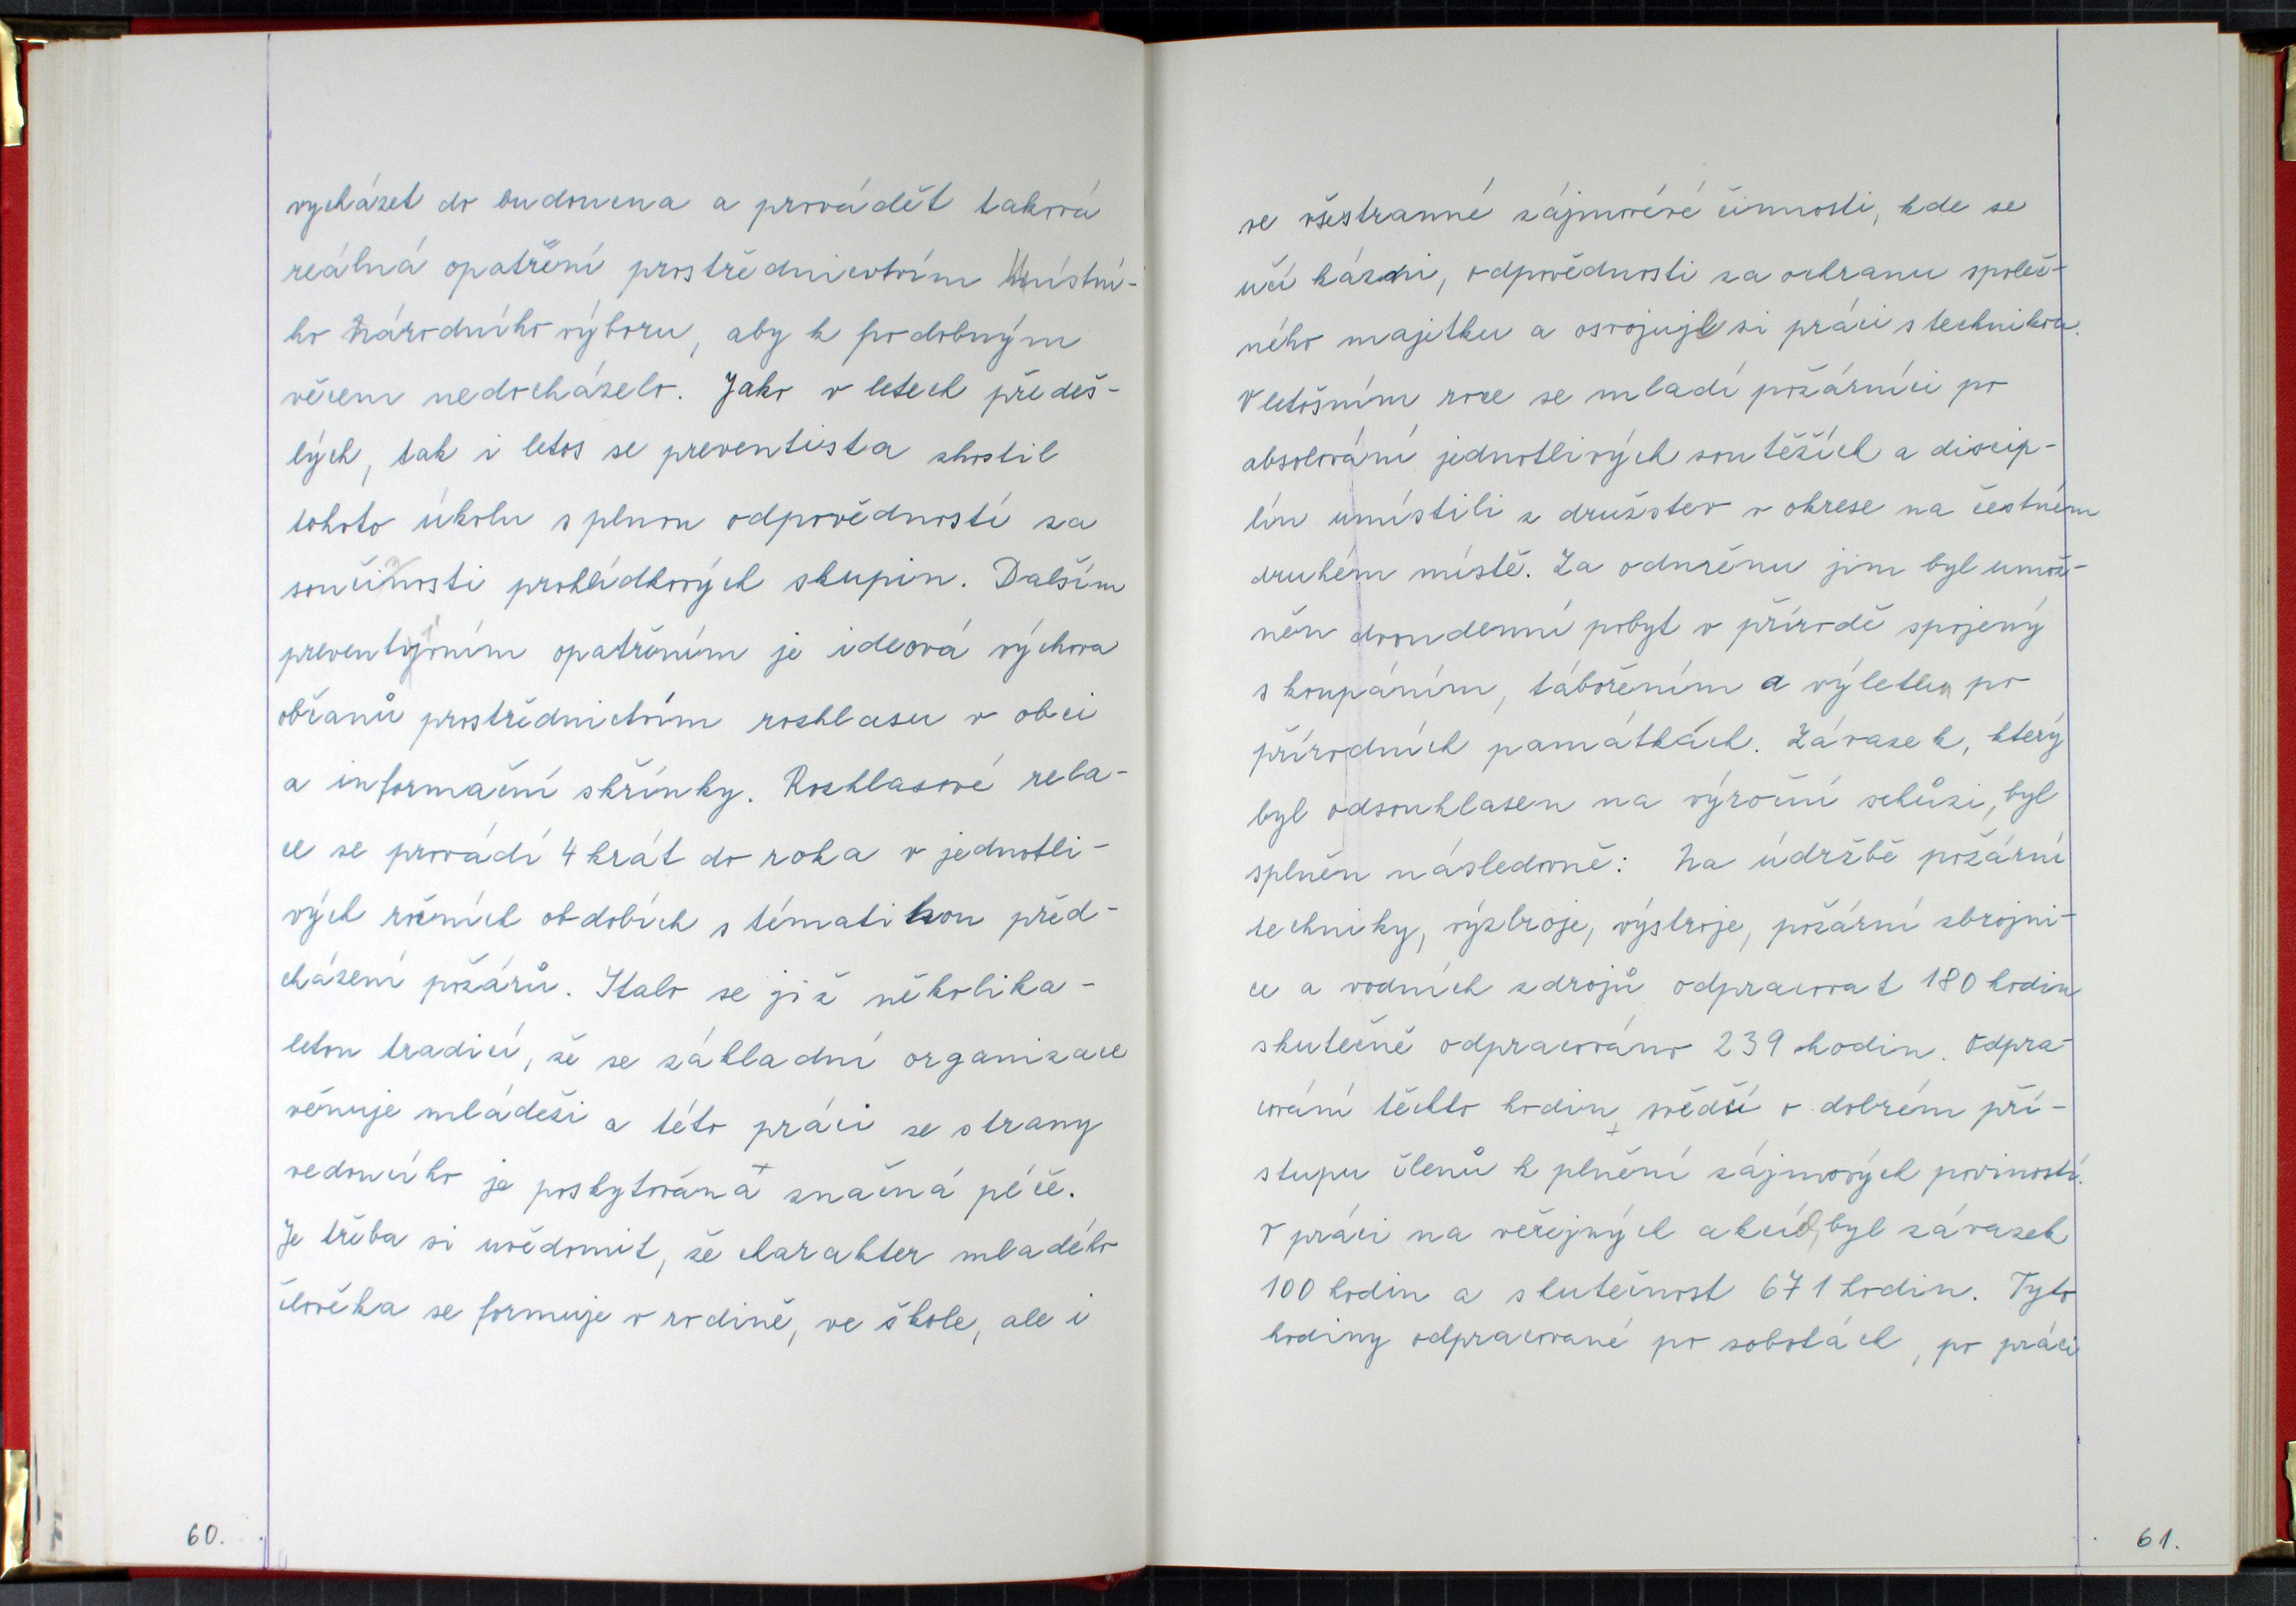 vycházet do budoucna a provádět taková
reálná opatření prostřednictvím Místní-
ho národního výboru, aby k podobným
věcem nedocházelo. Jako v letech předeš-
lých, tak i letos se preventista zhostil
tohoto úkolu s plnou odpovědností za
součinosti prohlídkových skupin. Dalším
preventivním opatřením je ideová výchova
občanů prostřednictvím rozhlasu v obci
a informační skřínky. Rozhlasové rela-
ce se provádí 4 krát do roka v jednotli-
vých ročních obdobích s tématikou před-
cházení požárů. Stalo se již několika-
letou tradicí, že se základní organizace
věnuje mládeži a této práci ze strany
vedoucího je poskytována značná péče.
Je třeba si uvědomit, že charakter mladého
člověka se formuje v rodině, ve škole, ale i
60.
ve všestranné zájmové činnosti, kde se
učí kázni, odpovědnosti za ochranu společ-
ného majetku a osvojuje si práci s technikou.
V letošním roce se mladí požárníci po
absolování jednotlivých soutěžích a discip-
lín umístili z družstev v okrese na čestném
druhém místě. Za odměnu jim byl umož-
něn dvoudenní pobyt v přírodě spojený
s koupáním, tábořením a výletem po
přírodních památkách. Závazek, který
byl odsouhlasen na výroční schůzi, byl
splněn následovně: Na údržbě požární
techniky, výzbroje, výstroje, požární zbrojni-
ce a vodních zdrojů odpracovat 180 hodin
skutečně odpracováno 239 hodin. Odpra-
cování těchto hodin, svědčí o dobrém pří-
stupu členů k plnění zájmových poviností.
V práci na veřejných akcích, byl závazek
100 hodin a skutečnost 671 hodin. Tyto
hodiny odpracované po sobotách, po práci
61.